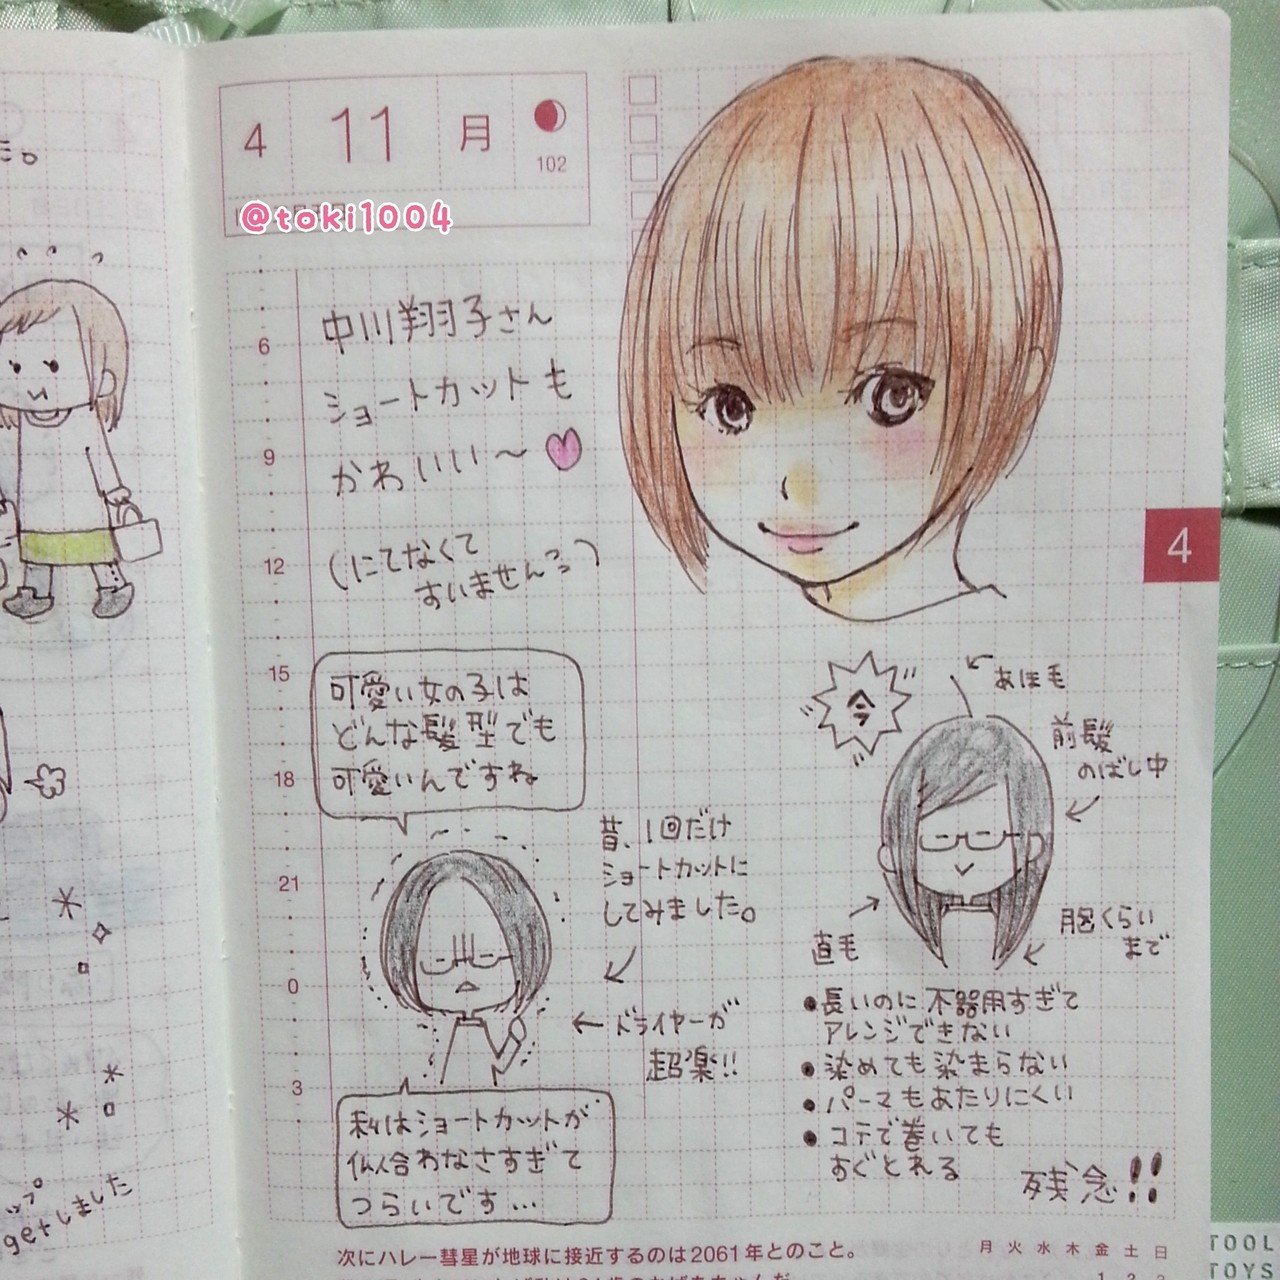 た。
4 11 月
102
@toki1004
中川翔子さん
ショートカットも
かわいい〜
(にてなくて
すいません)
6
9
12
15
18
21
0
3
4
可愛い女の子は
どんな髪型でも
可愛いんですね
昔、1回だけ
ショートカットに
してみました。
ドライヤーが
超楽!!
私はショートカットが
似合わなさすぎて
つらいです…
今
あほ毛
前髪
のばし中
直毛
胸くらい
まで
●長いのに不器用すぎて
アレンジできない
●染めても染まらない
●パーマもあたりにくい
●コテで巻いても
すぐとれる
残念!!
ップ
getしました
次にハレー彗星が地球に接近するのは2061年とのこと。
月 火 水 木 金 土 日
1 2 3
TOOL
TOYS